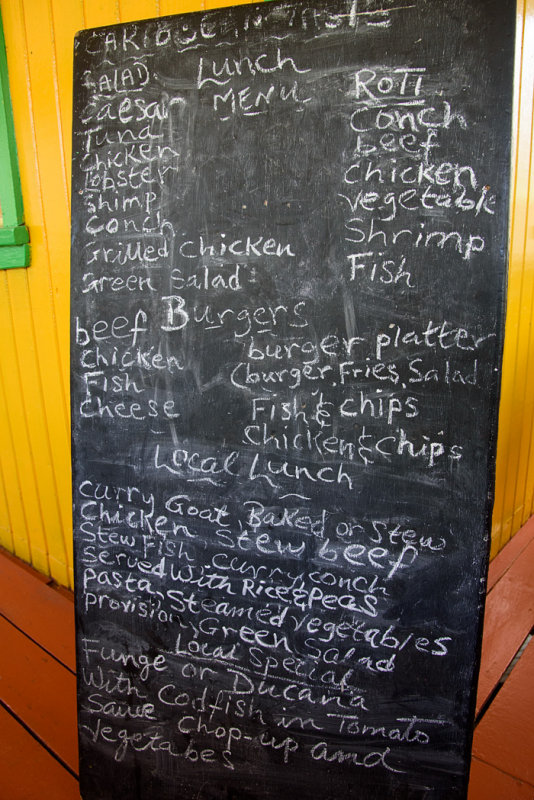 CARIBBEAN TASTE
Lunch
MENU
SALAD
Caesar
Tuna
Chicken
Lobster
Shimp
Conch
Grilled chicken
Green Salad
ROTI
Conch
beef
chicken
vegetable
Shrimp
Fish
Burgers
beef
Chicken
Fish
cheese
burger platter
(burger, Fries, Salad
Fish & chips
Chicken & chips
Local Lunch
curry Goat, Baked or Stew
Chicken Stew beef
Stew Fish curry conch
Served with Rice & Peas
Pasta, Steamed vegetables
provision, Green Salad
Local Special
Funge or Ducana
With Codfish in Tomato
Sauce Chop-up and
vegetabes